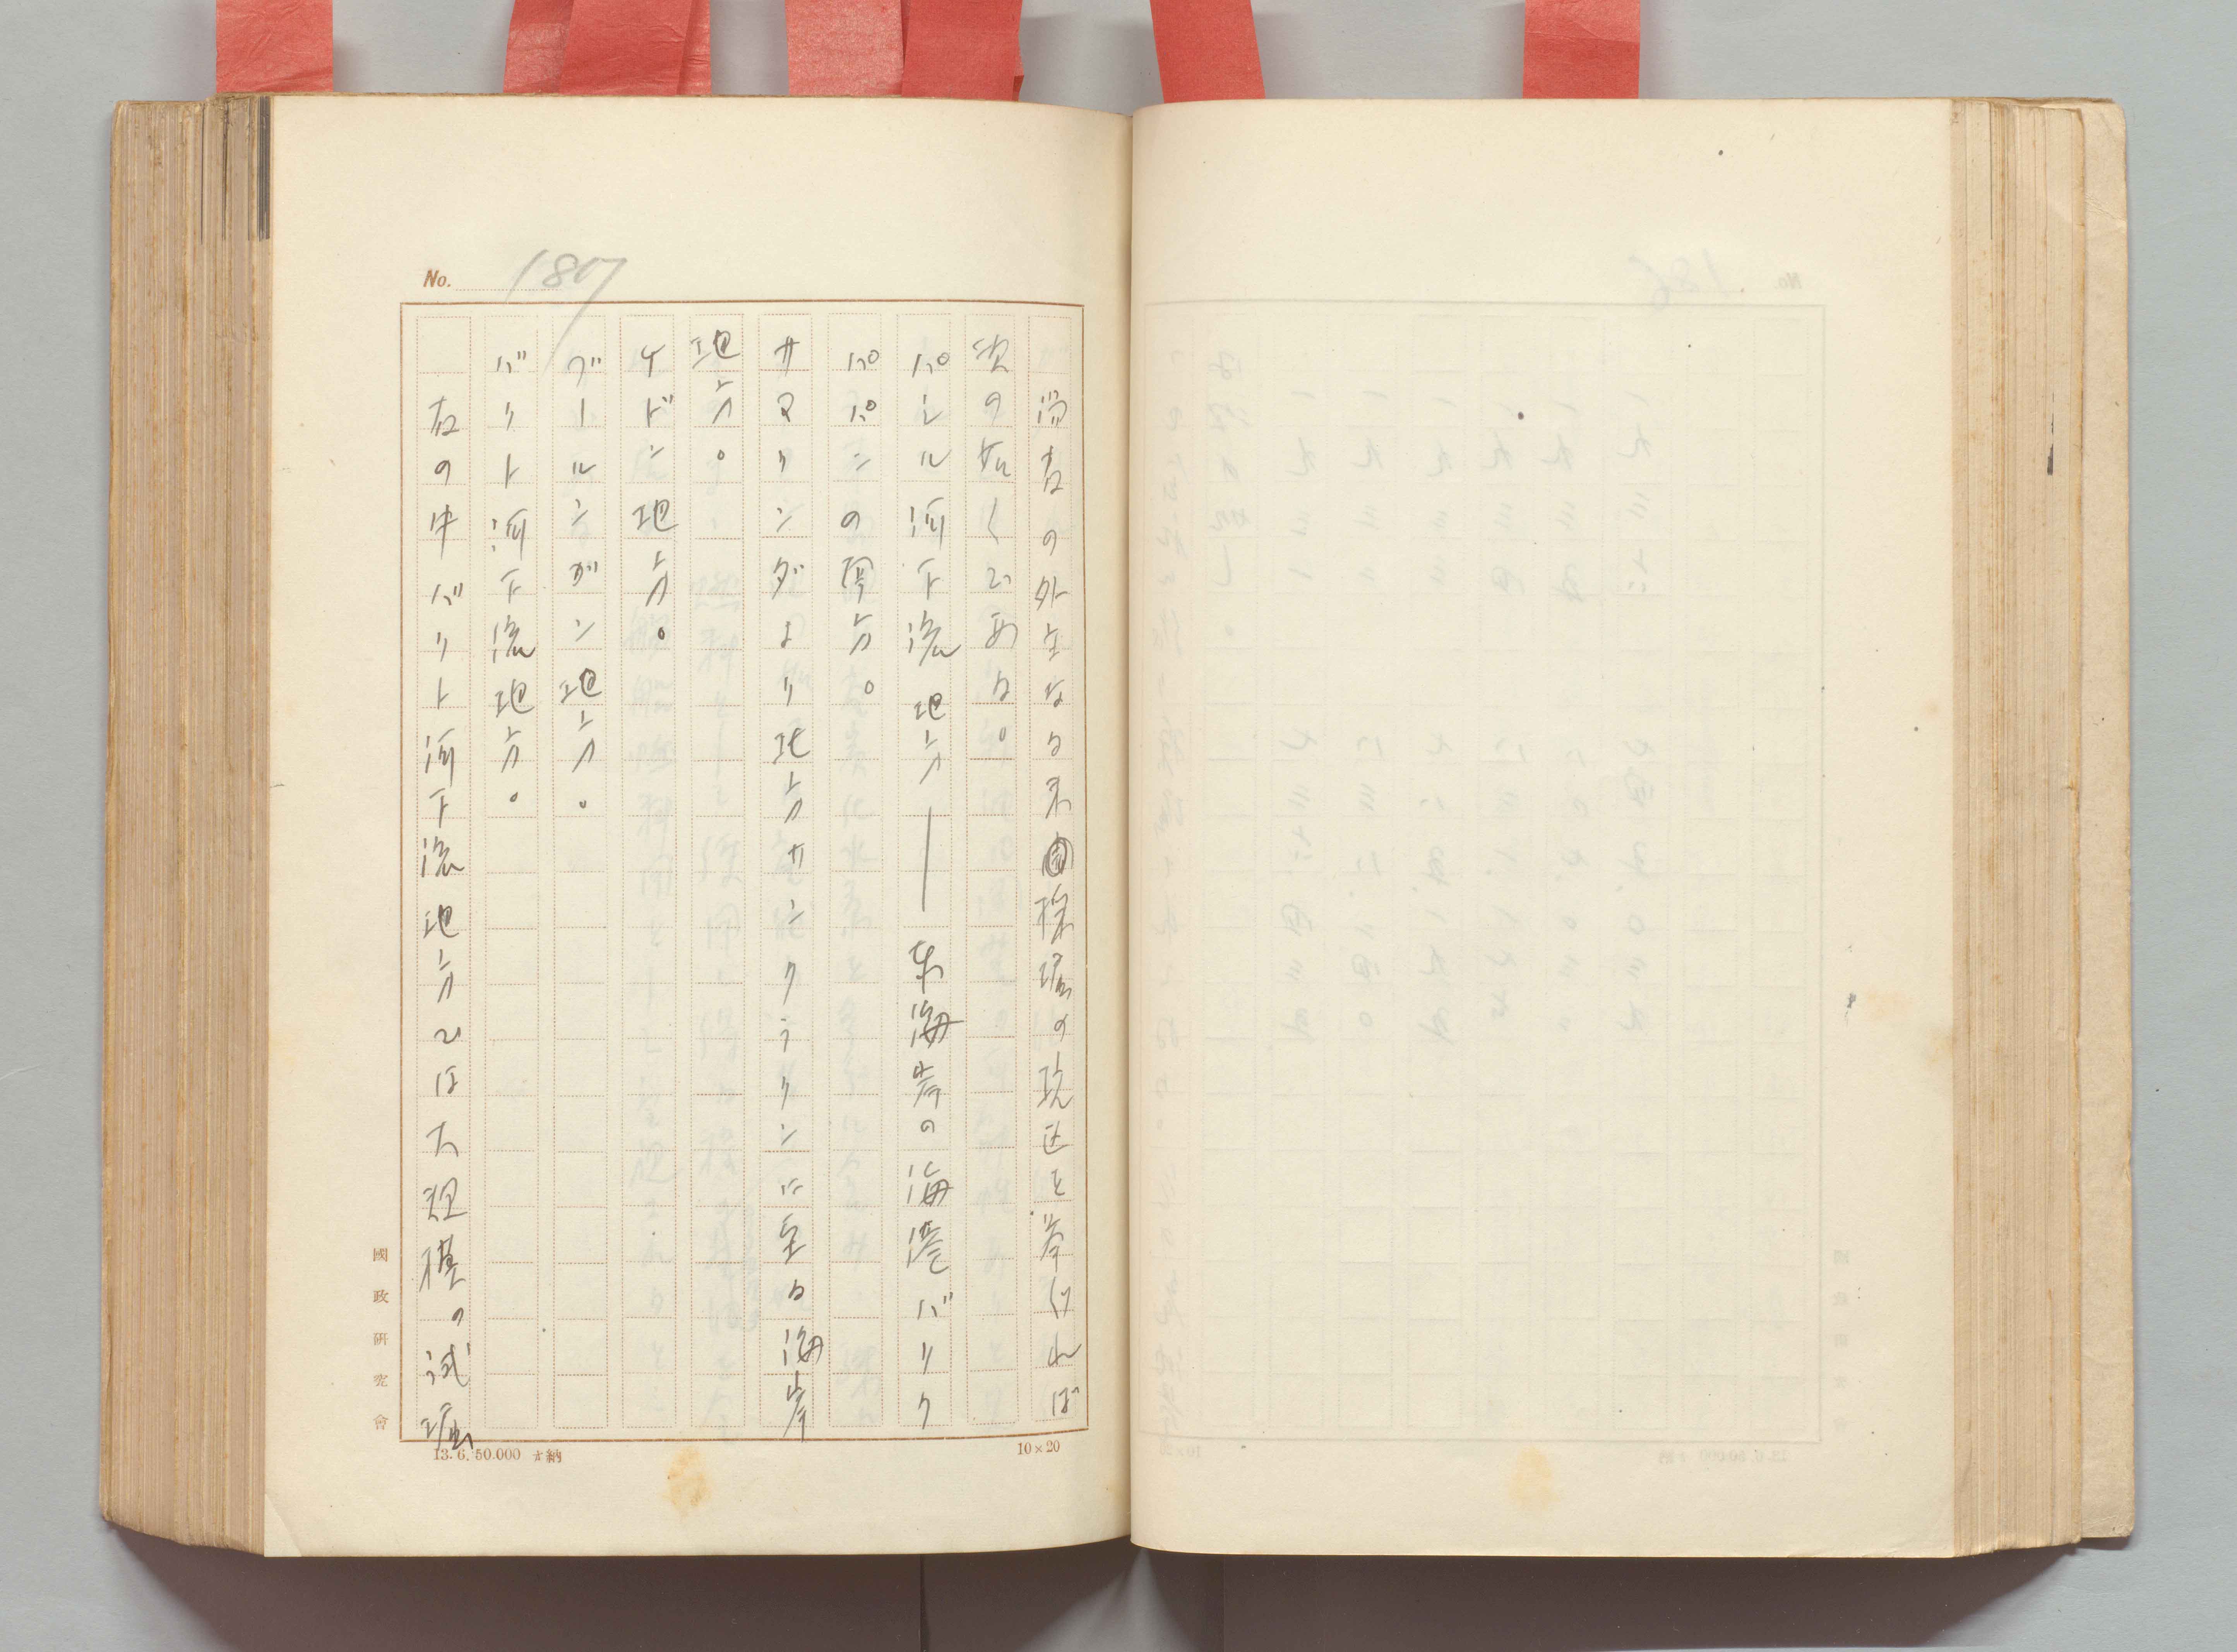 No. 187
尚右の外主なる未採堀の砿区を挙ければ
次の如くである。
パシル河下流地方——東海岸の海港バリク
パパンの方。
サマリンダより北方サンクうリンに至る海岸
地方。
ケドン地方。
ブールンガン地方。
バリト河下流地方。
右の中バリト河下流地方では大規模の試堀
國政研究會
13.6.50.000 納
10×20